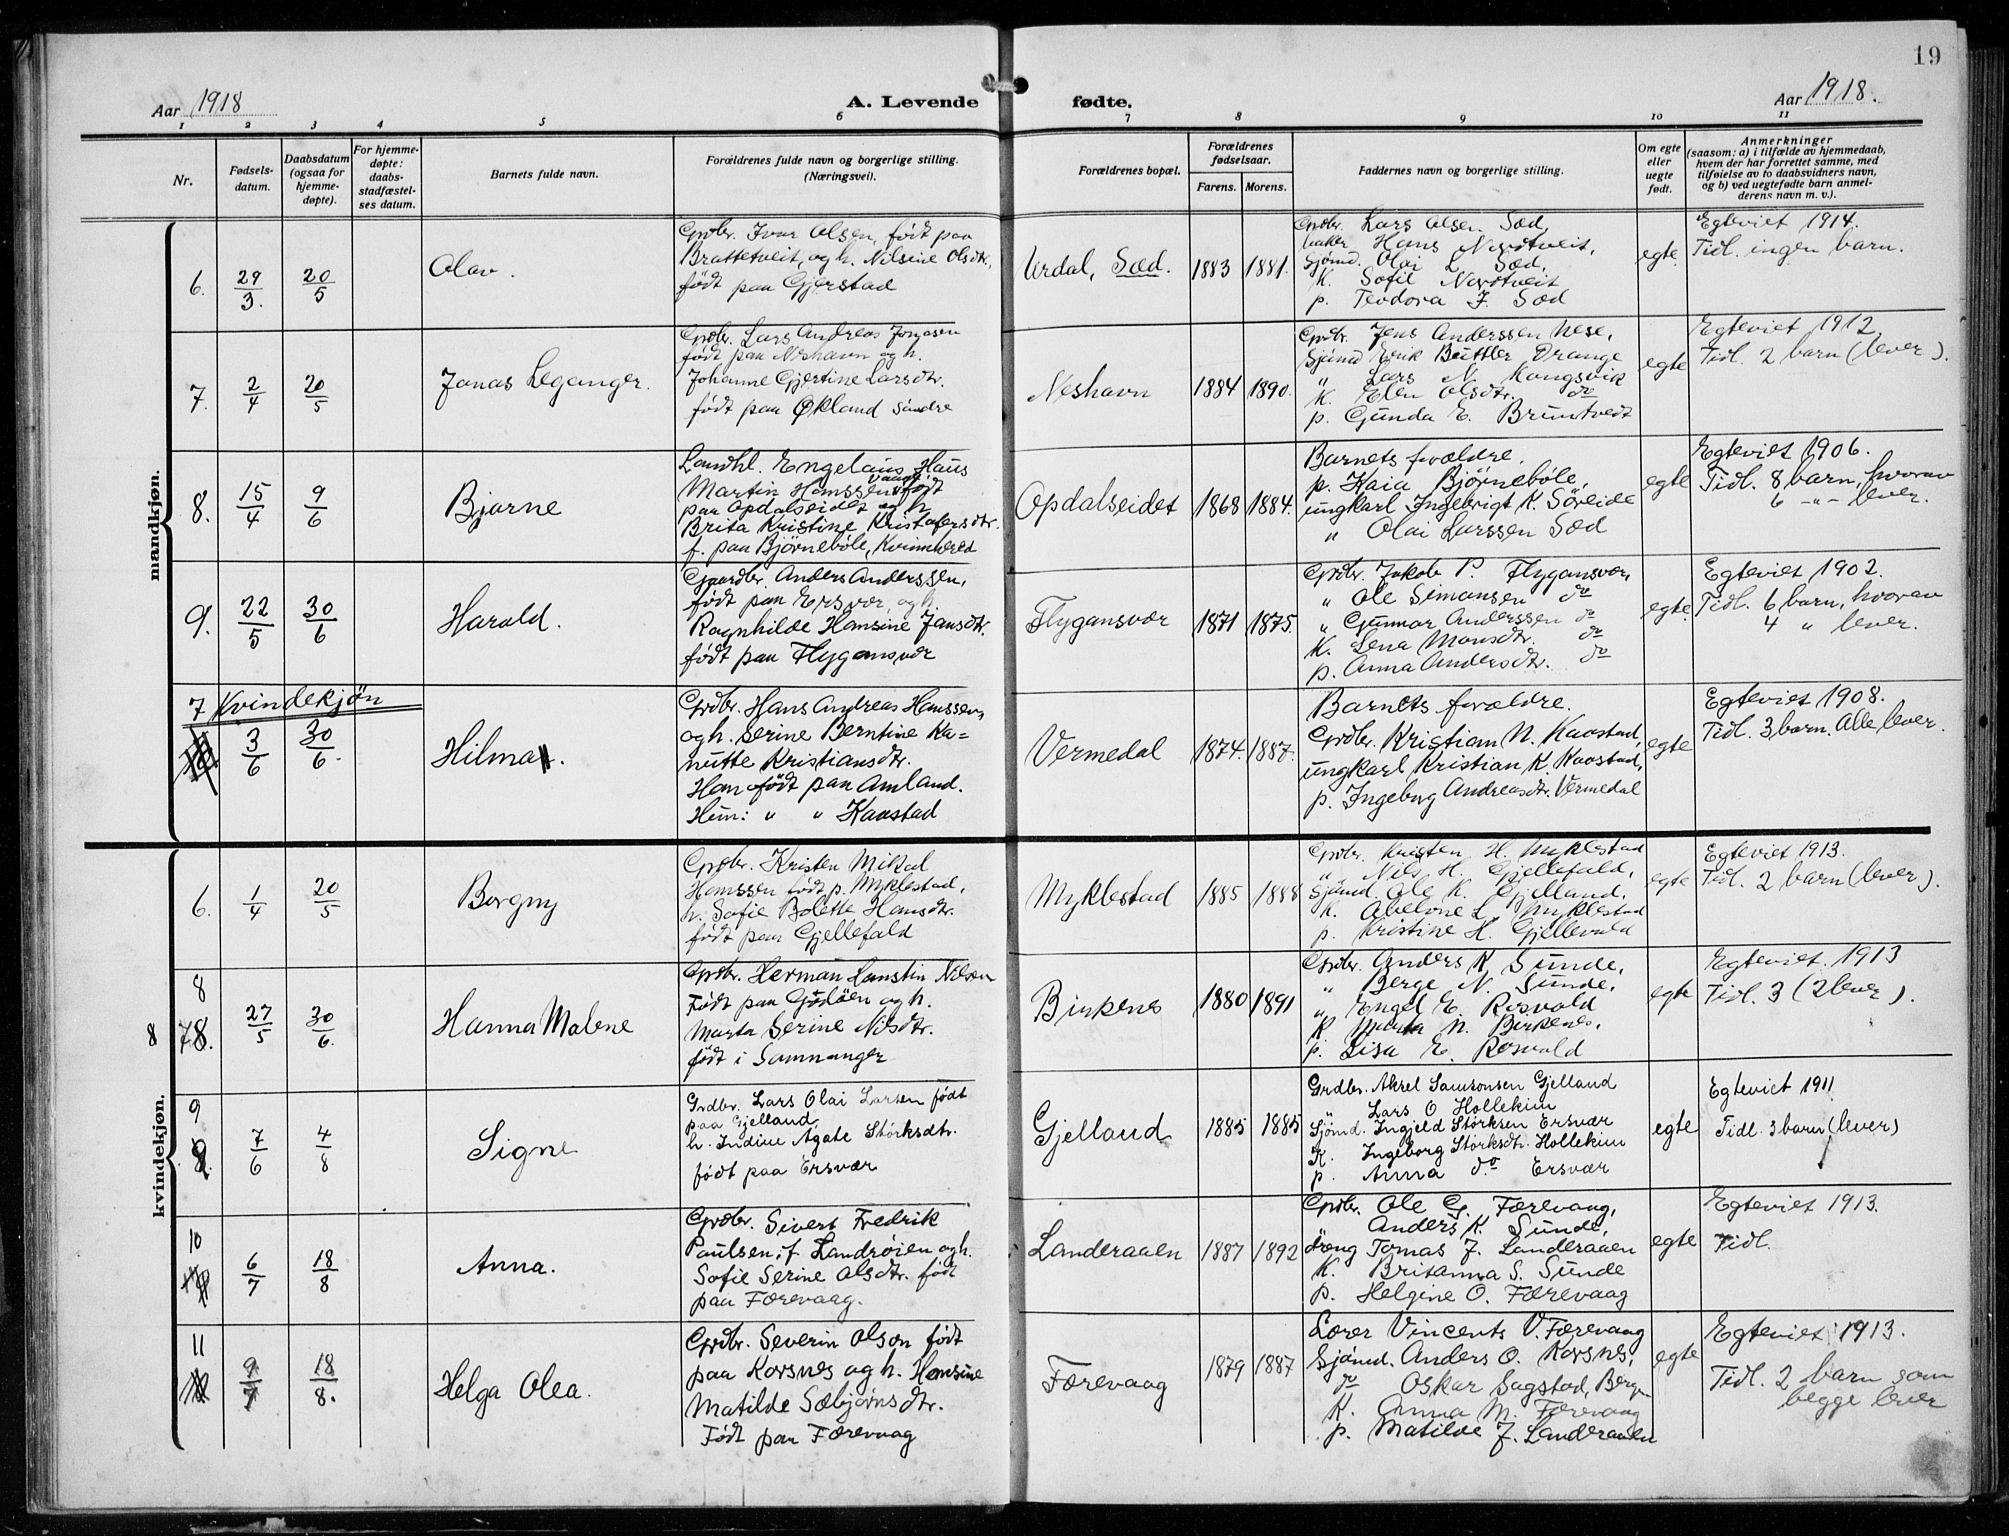 19
Aar 1918
A. Levende
fødte.
Aar 1918.
1 2 3 4 5 6 7 8 9 10 11
Nr.
Fødsels-
datum.
Daabsdatum
(ogsaa for
hjemme-
døpte).
For hjemme-
døpte:
daabs-
stadfæstel-
ses datum.
Barnets fulde navn.
Forældrenes fulde navn og borgerlige stilling.
(Næringsvei).
Forældrenes bopæl.
Forældrenes
fødselsaar.
Farens. Morens.
Faddernes navn og borgerlige stilling.
Om egte
eller
uegte
født.
Anmerkninger
(saasom: a) i tilfælde av hjemmedaab,
hvem der har forrettet samme, med
tilføielse av to daabsvidners navn,
og b) ved uegtefødte barn anmel-
derens navn m. v.).
mandkjøn.
6. 29/3. 20/5 Olav.
Grdbr. Ivar Olsen, født paa
Brattetveit, og h. Nilsine Olsdtr.,
født paa Gjerstad
Urdal, Sæd. 1883 1881.
Grdbr. Lars Olsen Sæd,
Hans Nordtveit,
Sjømd. Olai L. Sæd,
K. Sofie Nordtveit
p. Teodora J. Sæd
egte.
Egteviet 1914.
Tidl. ingen barn.
7. 2/4 20/5 Jonas Leganger.
Grdbr. Lars Andreas Jonasen
født paa Neshavn og h.
Johanne Gjertine Larsdtr.
født paa Økland søndre
Neshavn 1884 1890.
Grdbr. Jens Anderssen Nese,
Sjømd Erik Buttler Drange
" Lars N. Kongsvik
K. Elen Olsdtr. do
p. Gunda E. Bruntvedt
egte
Egteviet 1912.
Tidl. 2 barn (lever).
8. 15/4 9/6 Bjarne
Landhl. Engelaus Haus
Martin Hanssen Vaage født
paa Opdalseidet og h.
Brita Kristine Kristofersdtr.
f. paa Bjørnebøle, Kvinnhered
Opdalseidet 1868 1884.
Barnets forældre.
p. Kaia Bjørnebøle,
ungkarl Ingebrigt K. Søreide
" Olai Larssen Sæd
egte
Egteviet 1906.
Tidl. 8 barn, hvorav
6 -"- lever.
9. 22/5 30/6 Harald.
Gaardbr. Anders Anderssen,
født paa Ersvær, og h.
Ragnhilde Hansine Jansdtr.
født paa Flygansvær
Flygansvær 1871 1875.
Grdbr. Jakob P. Flygansvær,
" Ole Simonsen do
" Gunnar Anderssen do
K. Lena Monsdtr. do
p. Anna Andersdtr. do
egte.
Egteviet 1902.
Tidl. 6 barn, hvorav
4 " lever.
7 Kvindekjøn
3/6 30/6. Hilma.
Grdbr. Hans Andreas Hanssen,
og h. Serine Berntine Ka=
nutte Kristiansdtr.
Han født paa Amland.
Hun: " " Kaastad
Vermedal 1874. 1887.
Barnets forældre.
Grdbr. Kristian N. Kaastad,
ungkarl Kristian K. Kaastad,
p. Ingeborg Andreasdtr. Vermedal
egte
Egteviet 1908.
Tidl. 3 barn. Alle lever.
kvindekjøn.
6. 1/4 20/5 Borgny
Grdbr. Kristen Mikal
Hanssen født p. Myklestad,
h. Sofie Bolette Hansdtr.
født paa Gjellefald
Myklestad 1885 1888
Grdbr. Kristen H. Myklestad
" Nils H. Gjellefald,
Sjømd. Ole K. Gjelland,
K. Abelone L. Myklestad
p. Kristine H. Gjellevald
egte
Egteviet 1913.
Tidl. 2 barn (lever).
8
8 78. 27/5 30/6. Hanna Malene
Grdbr. Herman Nilsen
Født paa Godøen og h.
Marta Serine Nilsdtr.
født i Samnanger
Birkenes 1880 1891
Grdbr. Anders K. Sunde,
" Berge N. Sunde,
" Engel E. Rosvold
K Marta N. Berkenes.
p. Lisa E. Rosvold
egte
Egteviet 1913
Tidl. 3 (2 lever).
9
7/6 4/8 Signe
Grdbr. Lars Olai Larsen født
paa Gjelland,
h. Indine Agate Størksdtr.
født paa Ersvær
Gjelland 1885 1885
Grdbr. Aksel Samsonsen Gjelland
" Lars O Hollekim
Sjømd. Ingjeld Størksen Ersvær
K. Ingeborg Størksdtr. Hollekim
p. Anna do Ersvær
egte
Egteviet 1911
Tidl. 3 barn (lever)
10
6/7 18/8 Anna.
Grdbr. Sivert Fredrik
Paulsen, f. Landrøien og h.
Sofie Serine Olsdtr. født
paa Færevaag.
Landeraaen 1887 1892
Grdbr. Ole G. Færevaag,
Anders K. Sunde,
dreng Tomas J. Landeraaen
K. Britanna S. Sunde
p. Helgine O. Færevaag
egte
Egteviet 1913.
Tidl.
11
9/7 18/8. Helga Olea.
Grdbr. Severin Olson født
paa Korsnes og h. Hansine
Matilde Sæbjørnsdtr.
Født paa Færevaag
Færevaag 1879 1887
Lærer Vincents V. Færevaag
Sjømd. Anders O. Korsnes,
do Oskar Sagstad, Bergen
K. Anna M. Færevaag
p. Matilde J. Landeraaen
egte
Egteviet 1913.
Tidl. 2 barn som
begge lever